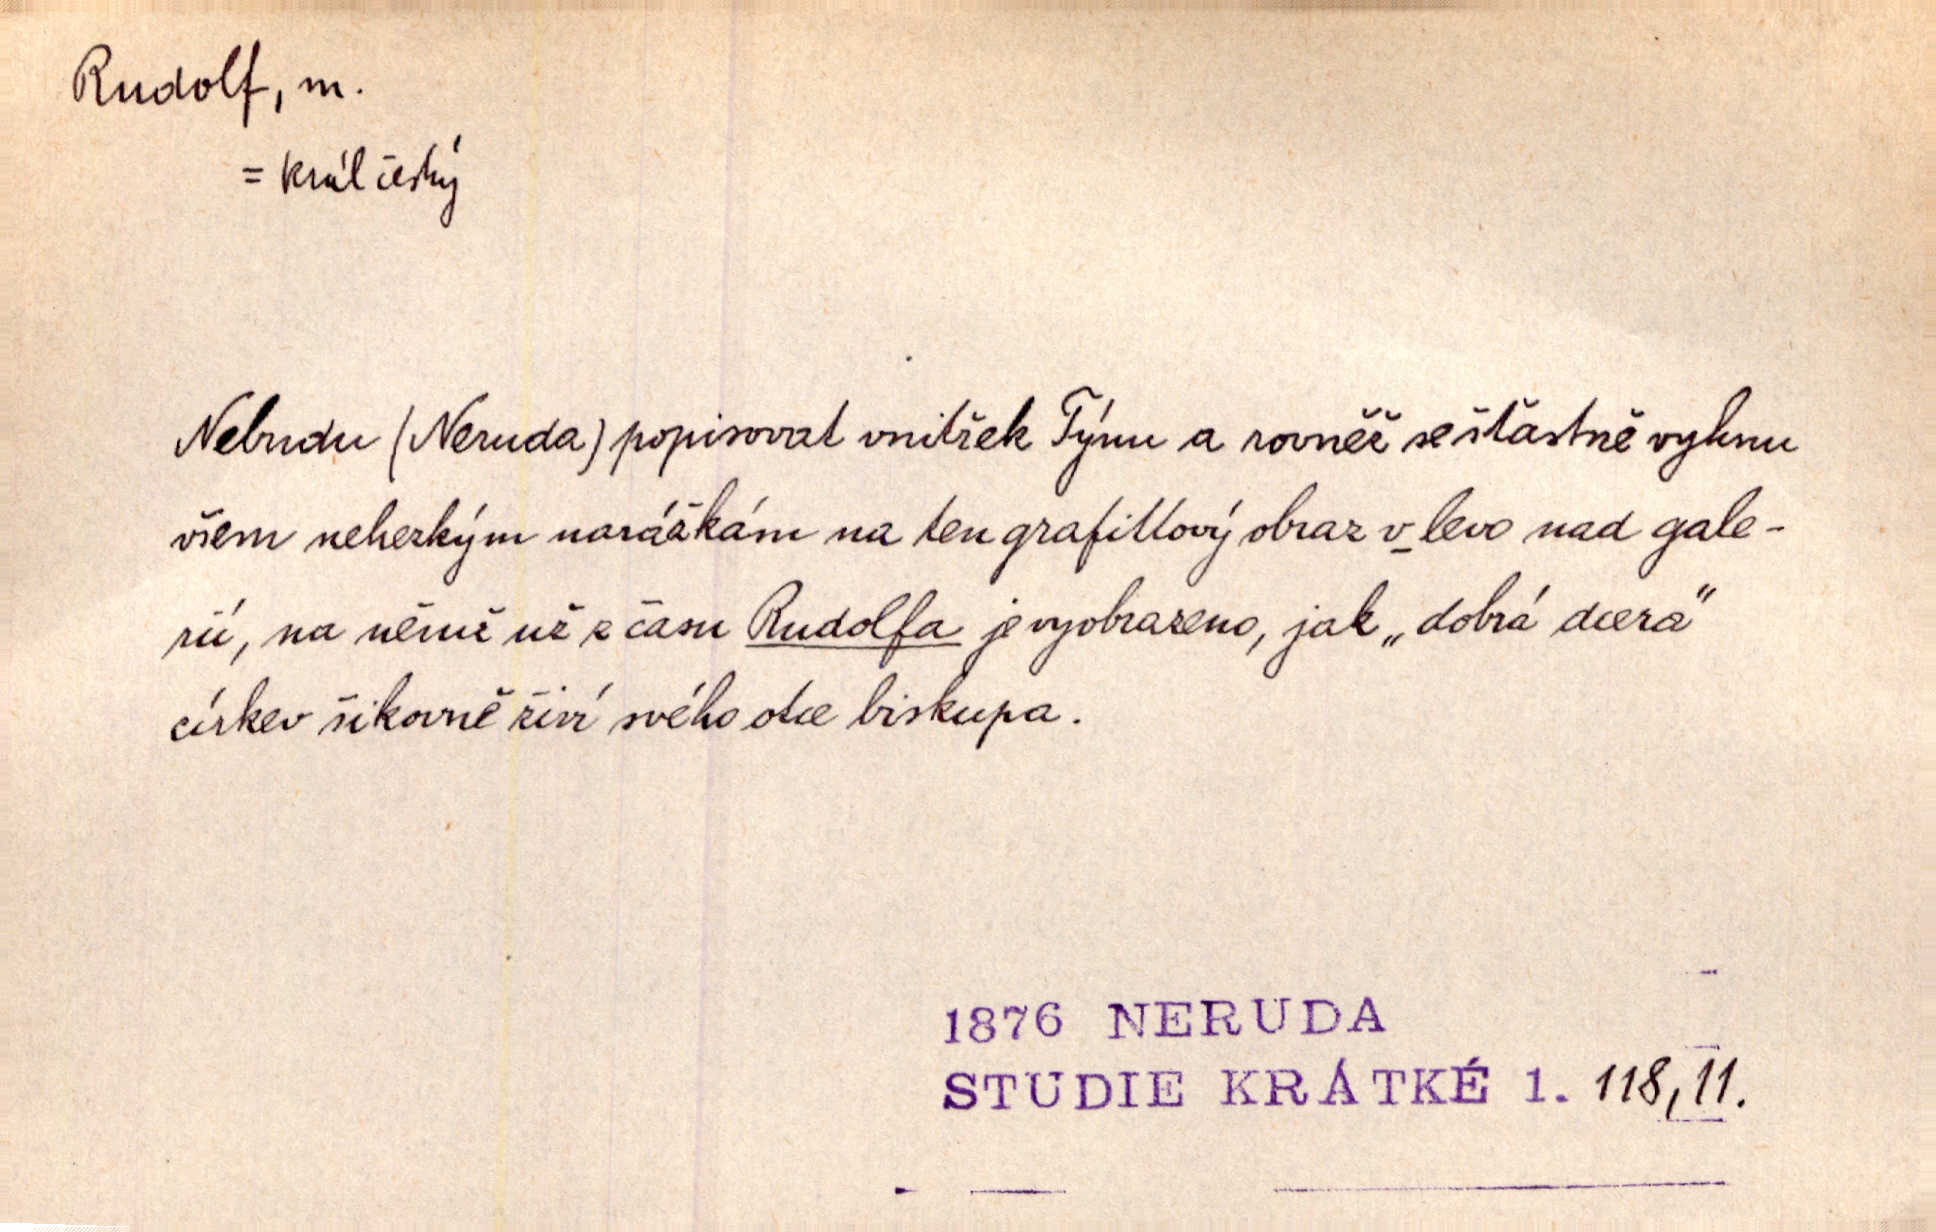 Rudolf, m.
= král český
Nebudu (Neruda) popisovat vnitřek Týnu a rovněž se šťastně vyhnu
všem nehezkým narážkám na ten grafittový obraz v_levo nad gale-
rií, na němž už z času Rudolfa je vyobrazeno, jak „dobrá dcera“
církev šikovně živí svého otce biskupa.
1876 NERUDA
STUDIE KRÁTKÉ 1. 118,11.